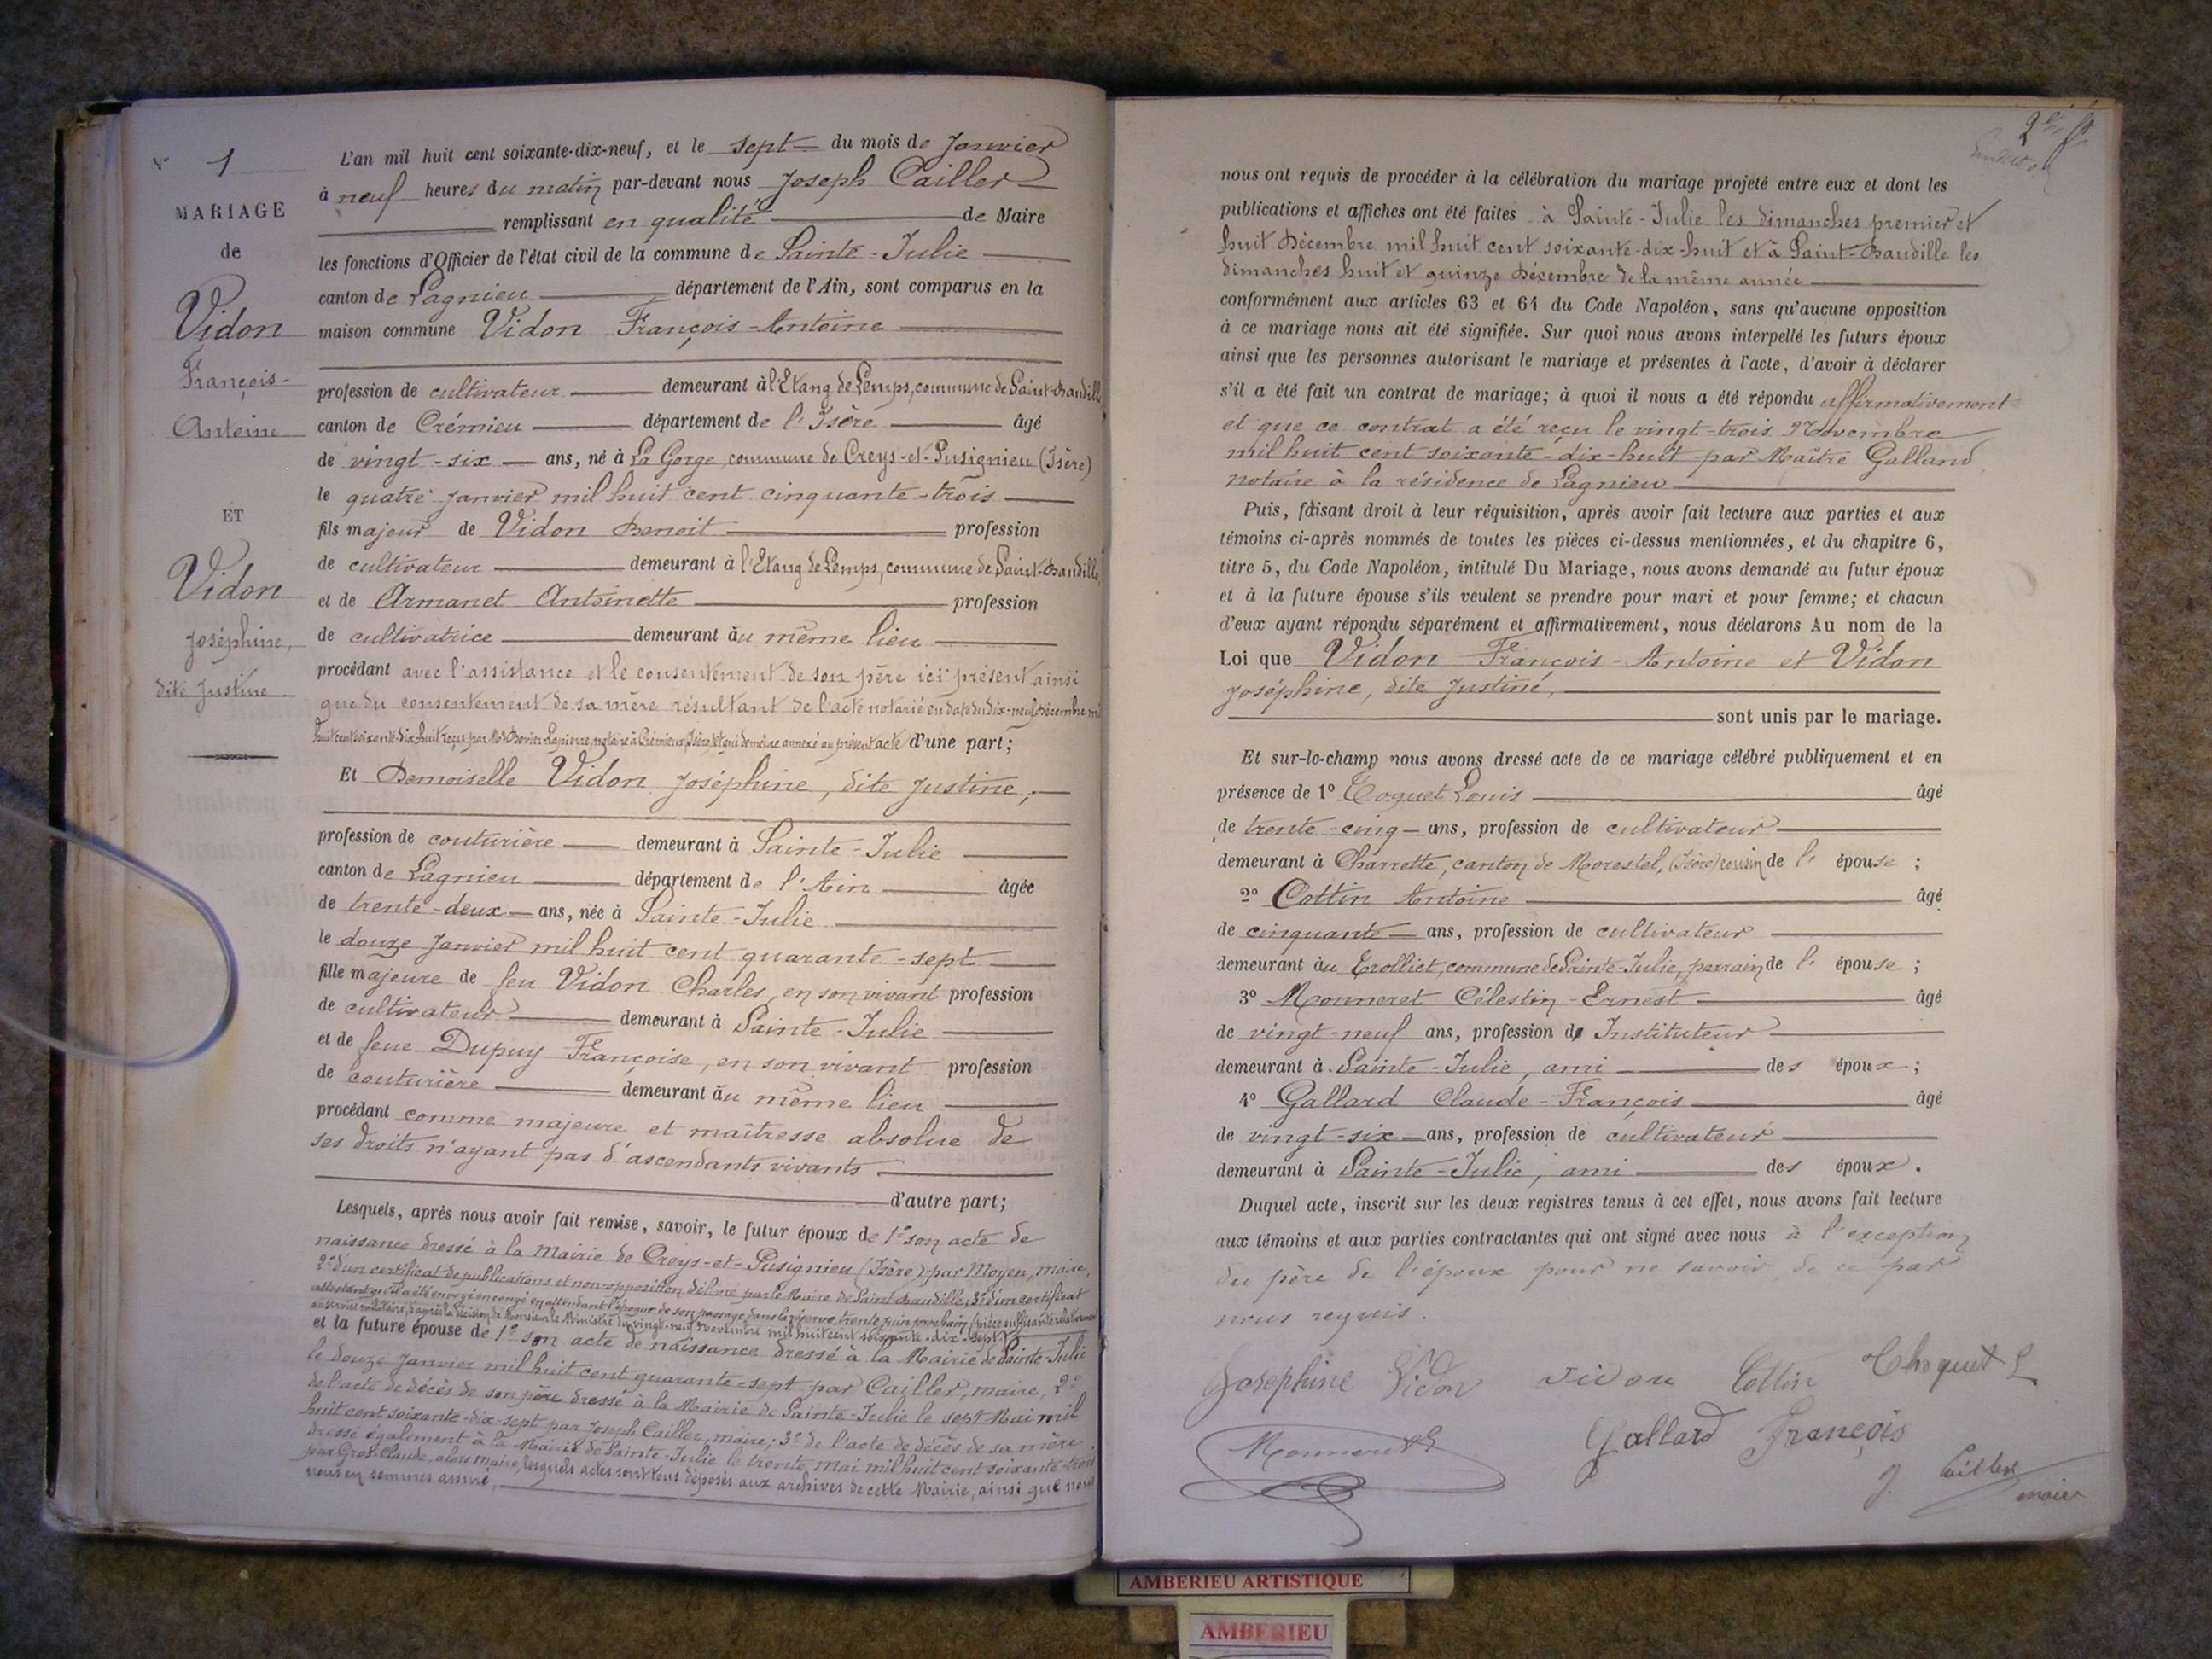 N° 1
MARIAGE
de
Vidon
François-
Antoine
ET
Vidon
Joséphine,
dite Justine
L'an mil huit cent soixante-dix-neuf, et le sept du mois de Janvier
à neuf heures du matin par-devant nous Joseph Cailler
remplissant en qualité de Maire
les fonctions d'Officier de l'état civil de la commune de Sainte-Julie
canton de Lagnieu département de l'Ain, sont comparus en la
maison commune Vidon François-Antoine
profession de cultivateur demeurant à l'Etang de Lemps, commune de Saint-Baudille
canton de Crémieu département de l'Isère âgé
de vingt-six ans, né à La Gorge, commune de Creys-et-Pusignieu (Isère)
le quatre Janvier mil huit cent cinquante-trois
fils majeur de Vidon Benoit profession
de cultivateur demeurant à l'Etang de Lemps, commune de Saint-Baudille
et de Armanet Antoinette profession
de cultivatrice demeurant au même lieu
procédant avec l'assistance et le consentement de son père ici présent ainsi
que du consentement de sa mère résultant de l'acte notarié en date du dix-neuf Décembre mil
huit cent soixante-dix-huit reçu par Me Lapierre, notaire à Crémieu, Isère, et qui demeure annexé au présent acte d'une part;
Et Demoiselle Vidon Joséphine, dite Justine,
profession de couturière demeurant à Sainte-Julie
canton de Lagnieu département de l'Ain âgée
de trente-deux ans, née à Sainte-Julie
le douze Janvier mil huit cent quarante-sept
fille majeure de feu Vidon Charles, en son vivant profession
de cultivateur demeurant à Sainte-Julie
et de feue Dupuy Françoise, en son vivant profession
de couturière demeurant au même lieu
procédant comme majeure et maîtresse absolue de
ses droits n'ayant pas d'ascendants vivants
d'autre part;
Lesquels, après nous avoir fait remise, savoir, le futur époux de 1° son acte de
naissance dressé à la Mairie de Creys-et-Pusignieu (Isère) par Moyen, maire,
2° d'un certificat de publications et non-opposition délivré par le Maire de Saint Baudille; 3° d'un certificat
attestant qu'il a été envoyé en congé en attendant l'époque de son passage dans la réserve trente juin prochain (pièce suffisante relativement
au service militaire, d'après la décision de Monsieur le Ministre du vingt-neuf Novembre mil huit cent soixante-dix-sept.)
et la future épouse de 1° son acte de naissance dressé à la Mairie de Sainte-Julie
le douze Janvier mil huit cent quarante-sept par Cailler, maire, 2°
de l'acte de décès de son père dressé à la Mairie de Sainte-Julie le sept Mai mil
huit cent soixante-dix-sept par Joseph Cailler, maire; 3° de l'acte de décès de sa mère
dressé également à la Mairie de Sainte-Julie le trente Mai mil huit cent soixante-trois
par Gros-Claude, alors maire, lesquels actes sont tous déposés aux archives de cette Mairie, ainsi que nous
nous en sommes assuré,
nous ont requis de procéder à la célébration du mariage projeté entre eux et dont les
publications et affiches ont été faites à Sainte-Julie les dimanches premier et
huit Décembre mil huit cent soixante-dix-huit et à Saint-Baudille les
dimanches huit et quinze Décembre de la même année
conformément aux articles 63 et 64 du Code Napoléon, sans qu'aucune opposition
à ce mariage nous ait été signifiée. Sur quoi nous avons interpellé les futurs époux
ainsi que les personnes autorisant le mariage et présentes à l'acte, d'avoir à déclarer
s'il a été fait un contrat de mariage; à quoi il nous a été répondu affirmativement
et que ce contrat a été reçu le vingt-trois Novembre
mil huit cent soixante-dix-huit par Maître Galland,
notaire à la résidence de Lagnieu
Puis, faisant droit à leur réquisition, après avoir fait lecture aux parties et aux
témoins ci-après nommés de toutes les pièces ci-dessus mentionnées, et du chapitre 6,
titre 5, du Code Napoléon, intitulé Du Mariage, nous avons demandé au futur époux
et à la future épouse s'ils veulent se prendre pour mari et pour femme; et chacun
d'eux ayant répondu séparément et affirmativement, nous déclarons Au nom de la
Loi que Vidon François-Antoine et Vidon
Joséphine, dite Justine,
sont unis par le mariage.
Et sur-le-champ nous avons dressé acte de ce mariage célébré publiquement et en
présence de 1° Coquet Louis âgé
de trente-cinq ans, profession de cultivateur
demeurant à Charrette, canton de Morestel, (Isère) cousin de l'épouse;
2° Cottin Antoine âgé
de cinquante ans, profession de cultivateur
demeurant au Trolliet, commune de Sainte-Julie, parrain de l'épouse;
3° Monneret Célestin-Ernest âgé
de vingt-neuf ans, profession de Instituteur
demeurant à Sainte-Julie, ami des époux;
4° Gallard Claude-François âgé
de vingt-six ans, profession de cultivateur
demeurant à Sainte-Julie, ami des époux.
Duquel acte, inscrit sur les deux registres tenus à cet effet, nous avons fait lecture
aux témoins et aux parties contractantes qui ont signé avec nous à l'exception
du père de l'époux pour ne savoir de ce par
nous requis.
Josephine Vidon Vidon Cottin Choquet L
Monneret Gallard François
J. Cailler
maire
AMBERIEU ARTISTIQUE
AMBERIEU